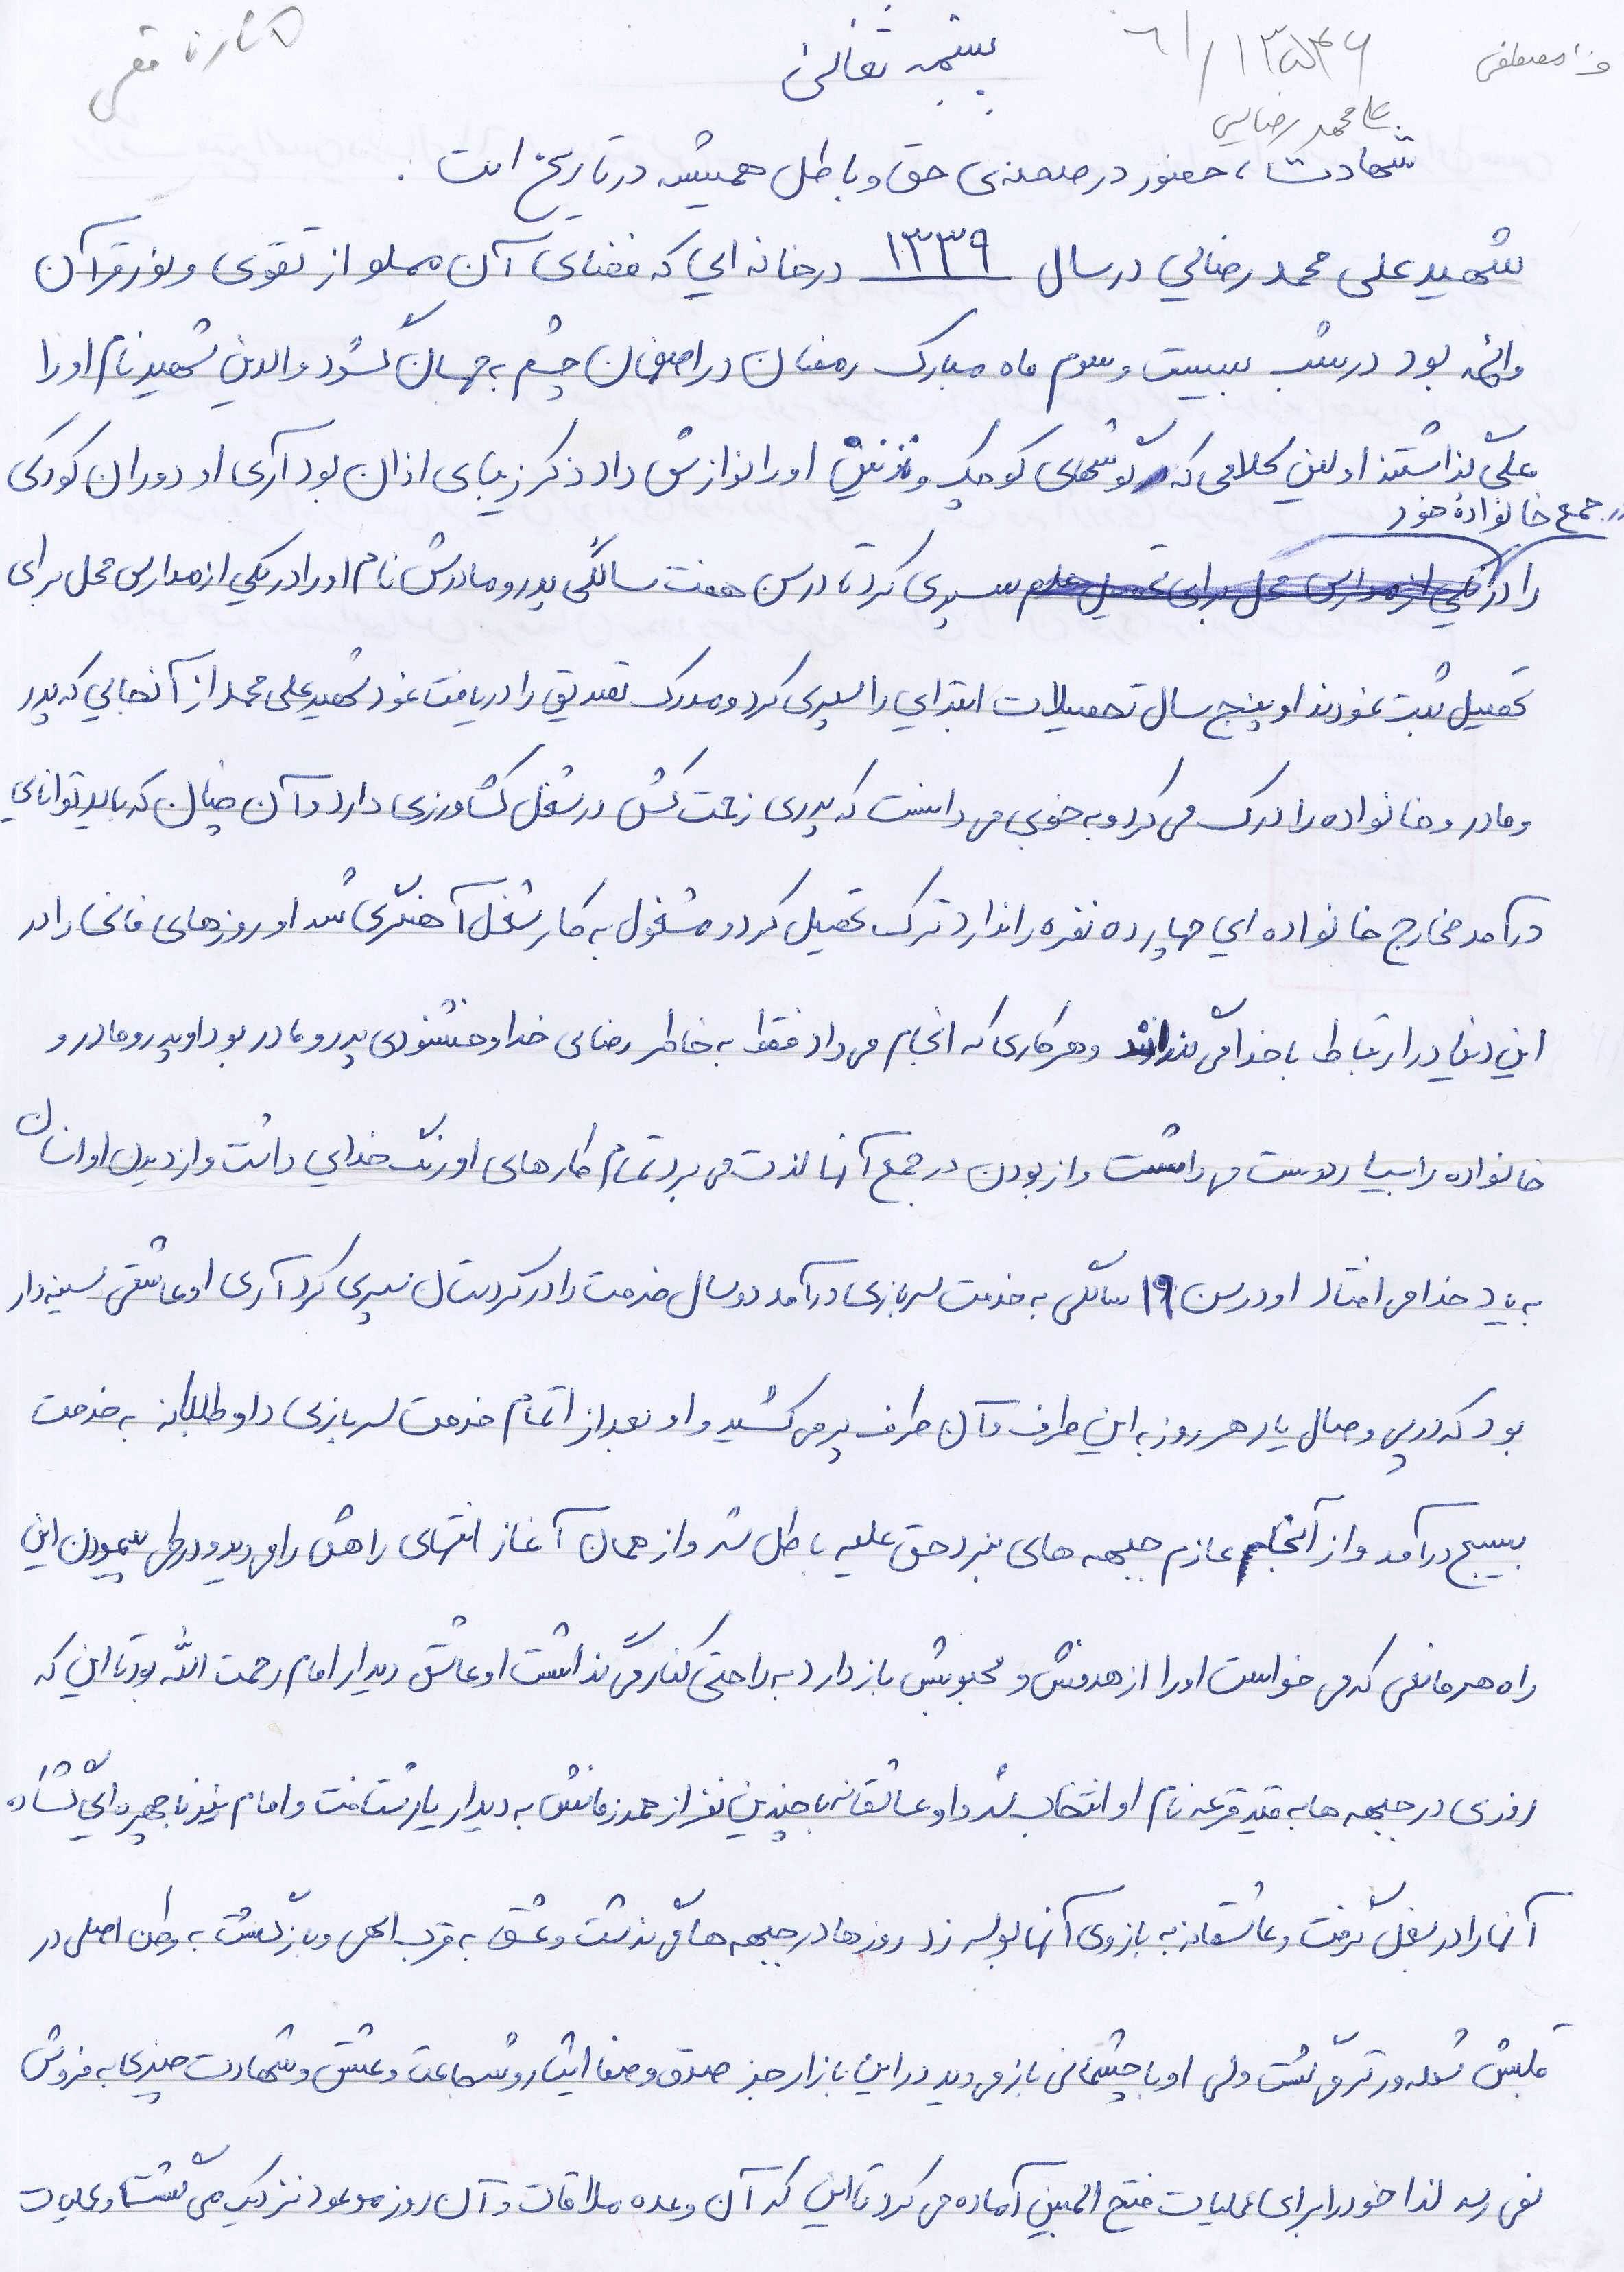 بسمه تعالی
۱۳۵۴۶/
علی محمد رضایی
شهادت، حضور در صحنه‌ی حق و باطل همیشه در تاریخ است.
شهید علی محمد رضایی در سال ۱۳۳۹ در خانه ایی که فضای آن مملو از تقوی و نور قرآن
وائمه بود در شب بیست و سوم ماه مبارک رمضان در اصفهان چشم به جهان گشود والدین شهید نام او را
علی گذاشتند اولین کلامی که گوشهای کوچک و نازنین او را نوازش داد ذکر زیبای اذان بود آری او دوران کودکی
در جمع خانوادهٔ خود
را در یکی از مدارس محل برای تحصیل علم سپری کرد، در سن هفت سالگی پدر و مادرش نام او را در یکی از مدارس محل برای
تحصیل ثبت نمودند او پنج سال تحصیلات ابتدایی را سپری کرد و مدرک تصدیق را دریافت نمود شهید علی محمد از آنجایی که پدر
و مادر و خانواده را درک می کرد و به خوبی می دانست که پدری زحمت کش در شغل کشاورزی دارد و آن چنان که باید توانای
درآمد مخارج خانواده ایی چهارده نفره را ندارد ترک تحصیل کرد و مشغول به کار شغل آهنگری شد او روزهای فانی را در
این دنیا در ارتباط با خدا می گذراند و هر کاری که انجام می داد فقط به خاطر رضای خدا و خشنودی پدر و مادر بود او پدر و مادر و
خانواده را بسیار دوست می داشت و از بودن در جمع آنها لذت می برد تمام کارهای او رنگ خدایی داشت و از دیدن او انسان
به یاد خدا می افتاد او در سن ۱۹ سالگی به خدمت سربازی درآمد دو سال خدمت را در کردستان سپری کرد آری او عاشقی سینه دار
بود که در پی وصال یار هر روز به این طرف و آن طرف پر می کشید و او بعد از اتمام خدمت سربازی داوطلبانه به خدمت
بسیج درآمد و از آنجا عازم جبهه های نبرد حق علیه باطل شد و از همان آغاز انتهای راهش را می دید و در طی پیمودن این
راه هر مانعی که می خواست او را از هدفش و محبوبش باز دارد به راحتی کنار می گذاشت او عاشق دیدار امام رحمت الله بود تا این که
روزی در جبهه ها به قید قرعه نام او انتخاب شد و او عاشقانه با چندین نفر از همرزمانش به دیدار یار شتافت و امام نیز با چهره ایی گشاده
آنها را در بغل گرفت و عاشقانه به بازوی آنها بوسه زد روزها در جبهه ها می گذشت و عشق به قرب الهی و بازگشت به وطن اصلی در
قلبش شعله ور تر می گشت ولی او با چشمانی باز می دید در این بازار جز صدق و صفا ایثار و شجاعت و عشق و شهادت چیزی به فروش
نمی رسد لذا خود را برای عملیات فتح المبین آماده می کرد تا این که آن وعده ملاقات و آن روز موعود نزدیک می گشت و عملیات